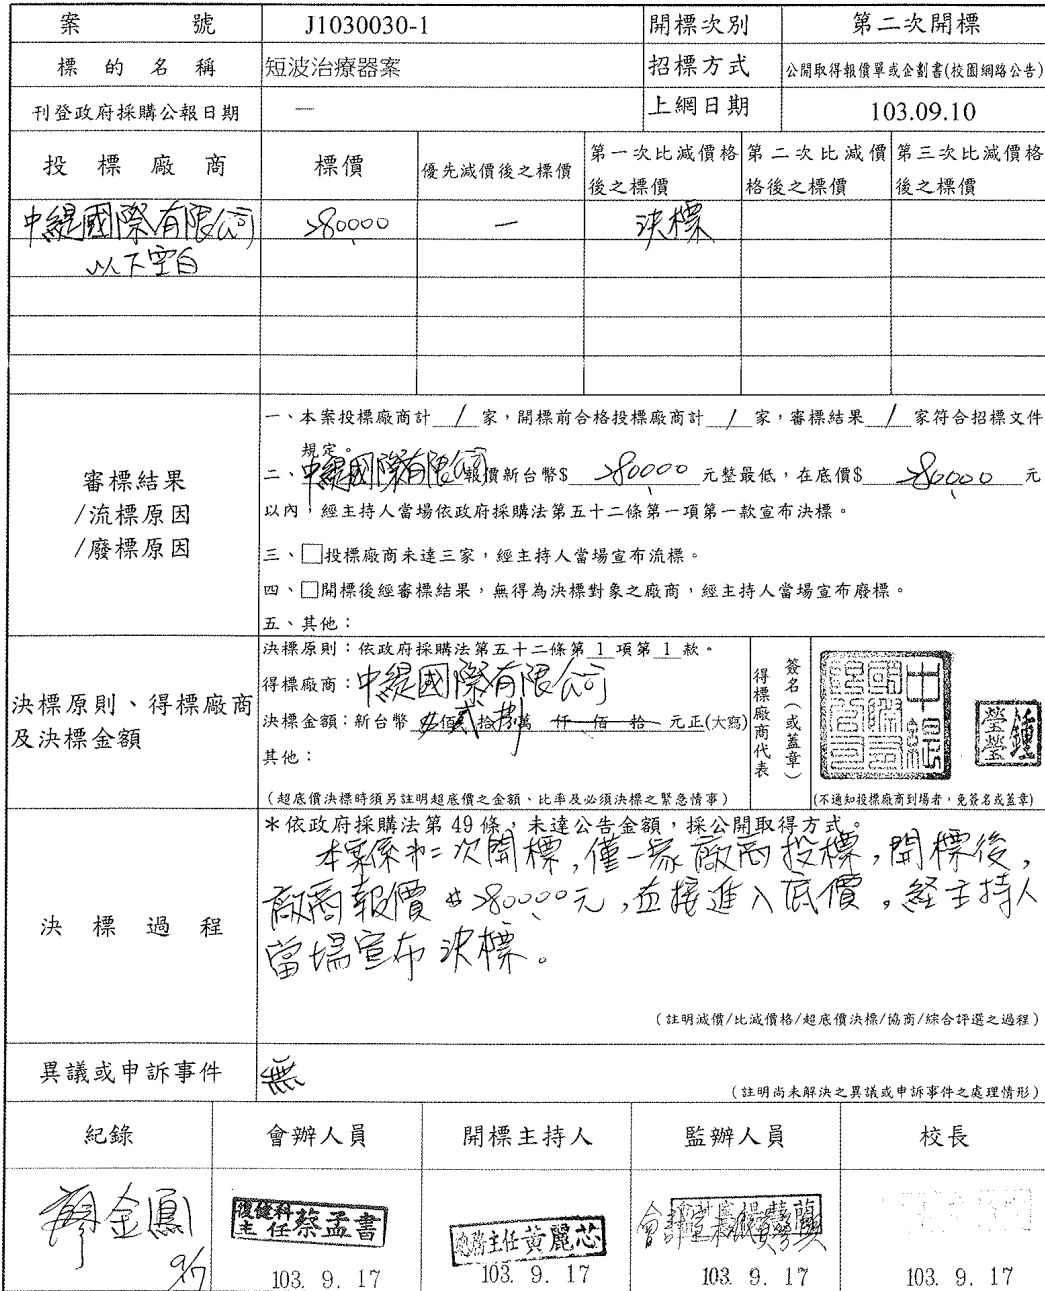 案 號 J1030030-1 開標次別 第二次開標
標的名稱 短波治療器案 招標方式 公開取得報價單或企劃書(校園網路公告)
刊登政府採購公報日期 — 上網日期 103.09.10
投標廠商 標價 優先減價後之標價 第一次比減價格後之標價 第二次比減價格後之標價 第三次比減價格後之標價
中緹國際有限公司 280000 — 決標
以下空白
審標結果
/流標原因
/廢標原因
一、本案投標廠商計 1 家,開標前合格投標廠商計 1 家,審標結果 1 家符合招標文件
規定。
二、中緹國際有限公司報價新台幣$ 280000 元整最低,在底價$ 280000 元
以內,經主持人當場依政府採購法第五十二條第一項第一款宣布決標。
三、□投標廠商未達三家,經主持人當場宣布流標。
四、□開標後經審標結果,無得為決標對象之廠商,經主持人當場宣布廢標。
五、其他:
決標原則、得標廠商
及決標金額
決標原則:依政府採購法第五十二條第 1 項第 1 款。
得標廠商:中緹國際有限公司
決標金額:新台幣 佰貳拾捌萬 仟 佰 拾 元正(大寫)
其他:
(超底價決標時須另註明超底價之金額、比率及必須決標之緊急情事)
得標廠商代表
簽名(或蓋章)
鍾瑩瑩
(不通知投標廠商到場者,免簽名或蓋章)
決標過程
*依政府採購法第49條,未達公告金額,採公開取得方式。
本案係第二次開標,僅一家廠商投標,開標後,
廠商報價$280000元,直接進入底價,經主持人
當場宣布決標。
(註明減價/比減價格/超底價決標/協商/綜合評選之過程)
異議或申訴事件 無
(註明尚未解決之異議或申訴事件之處理情形)
紀錄 會辦人員 開標主持人 監辦人員 校長
廖金鳳 9/17
復健科主任蔡孟書 103. 9. 17
總務主任黃麗芯 103. 9. 17
103. 9. 17
103. 9. 17